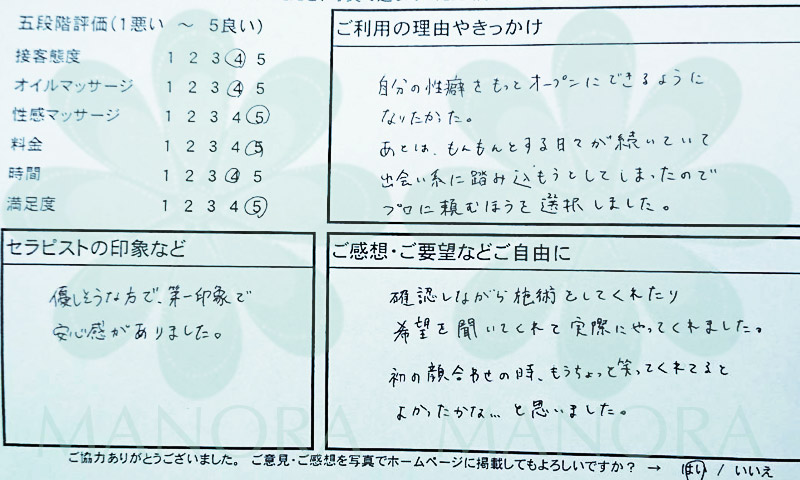 五段階評価(1悪い ～ 5良い)
接客態度 1 2 3 4 5
オイルマッサージ 1 2 3 4 5
性感マッサージ 1 2 3 4 5
料金 1 2 3 4 5
時間 1 2 3 4 5
満足度 1 2 3 4 5
ご利用の理由やきっかけ
自分の性癖をもっとオープンにできるように
なりたかった。
あとは、もんもんとする日々が続いていて
出会い系に踏み込もうとしてしまったので
プロに頼むほうを選択しました。
セラピストの印象など
優しそうな方で、第一印象で
安心感がありました。
ご感想・ご要望などご自由に
確認しながら施術をしてくれたり
希望を聞いてくれて実際にやってくれました。
初の顔合わせの時、もうちょっと笑ってくれてると
よかったかな… と思いました。
MANORA MANORA
ご協力ありがとうございました。 ご意見・ご感想を写真でホームページに掲載してもよろしいですか？ → はい / いいえ